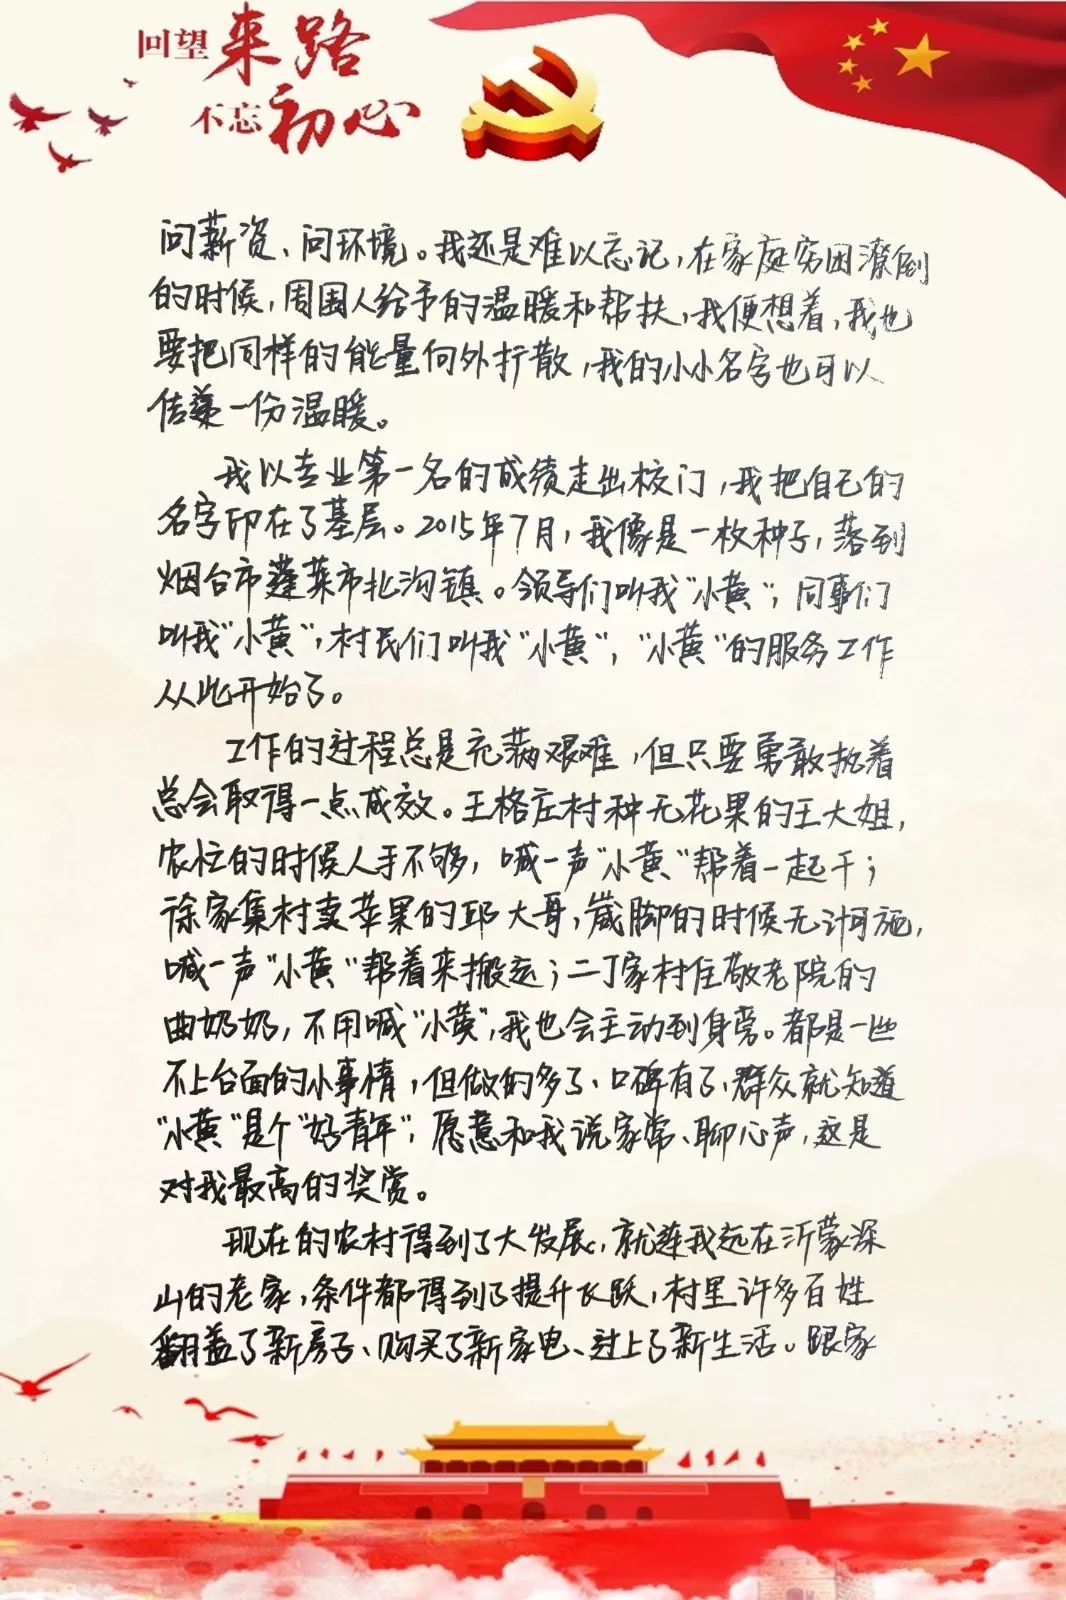 回望来路
不忘初心
问薪资、问环境。我还是难以忘记，在家庭穷困潦倒
的时候，周围人给予的温暖和帮扶，我便想着，我也
要把同样的能量向外扩散，我的小小名字也可以
传递一份温暖。
我以专业第一名的成绩走出校门，我把自己的
名字印在了基层。2015年7月，我像是一枚种子，落到
烟台市蓬莱市北沟镇。领导们叫我“小黄”，同事们
叫我“小黄”，村民们叫我“小黄”，“小黄”的服务工作
从此开始了。
工作的过程总是充满艰难，但只要勇敢执着
总会取得一点成效。王格庄村种无花果的王大姐，
农忙的时候人手不够，喊一声“小黄”帮着一起干；
徐家集村卖苹果的邱大哥，崴脚的时候无计可施，
喊一声“小黄”帮着来搬运；二丁家村住敬老院的
曲奶奶，不用喊“小黄”，我也会主动到身旁。都是一些
不上台面的小事情，但做的多了、口碑有了，群众就知道
“小黄”是个“好青年”，愿意和我说家常、聊心声，这是
对我最高的奖赏。
现在的农村得到了大发展，就连我远在沂蒙深
山的老家，条件都得到了提升飞跃，村里许多百姓
翻盖了新房子、购买了新家电、过上了新生活。跟家